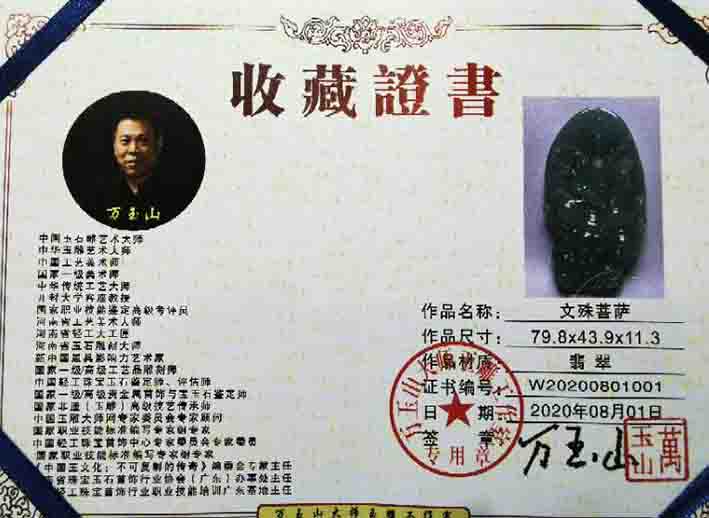 收藏證書
万玉山
中国玉石雕艺术大师
中华玉雕艺术大师
中国工艺美术师
国家一级美术师
中华传统工艺大师
国家职业技能鉴定高级考评员
河南省工艺美术大师
河南省轻工大工匠
河南省玉石雕刻大师
新中国最具影响力艺术家
国家一级/高级工艺品雕刻师
中国轻工珠宝玉石鉴定师、评估师
国家一级/高级贵金属首饰与宝玉石鉴定师
国家非遗（玉雕）高级技艺传承师
中国玉雕大师网专家委员会专家顾问
国家职业技能标准编写专家
中国轻工珠宝首饰中心专家委员会专家委员
国家职业技能标准编写专家
《中国玉文化：不可复制的传奇》编委会专家主任
省珠宝玉石首饰行业协会（广东）办事处主任
轻工珠宝首饰行业职业技能培训广东基地主任
作品名称： 文殊菩萨
作品尺寸： 79.8x43.9x11.3
作品材质： 翡翠
证书编号： W20200801001
日 期： 2020年08月01日
签 章： 万玉山
萬玉山
万玉山大师玉雕工作室
专用章
万玉山大师玉雕工作室